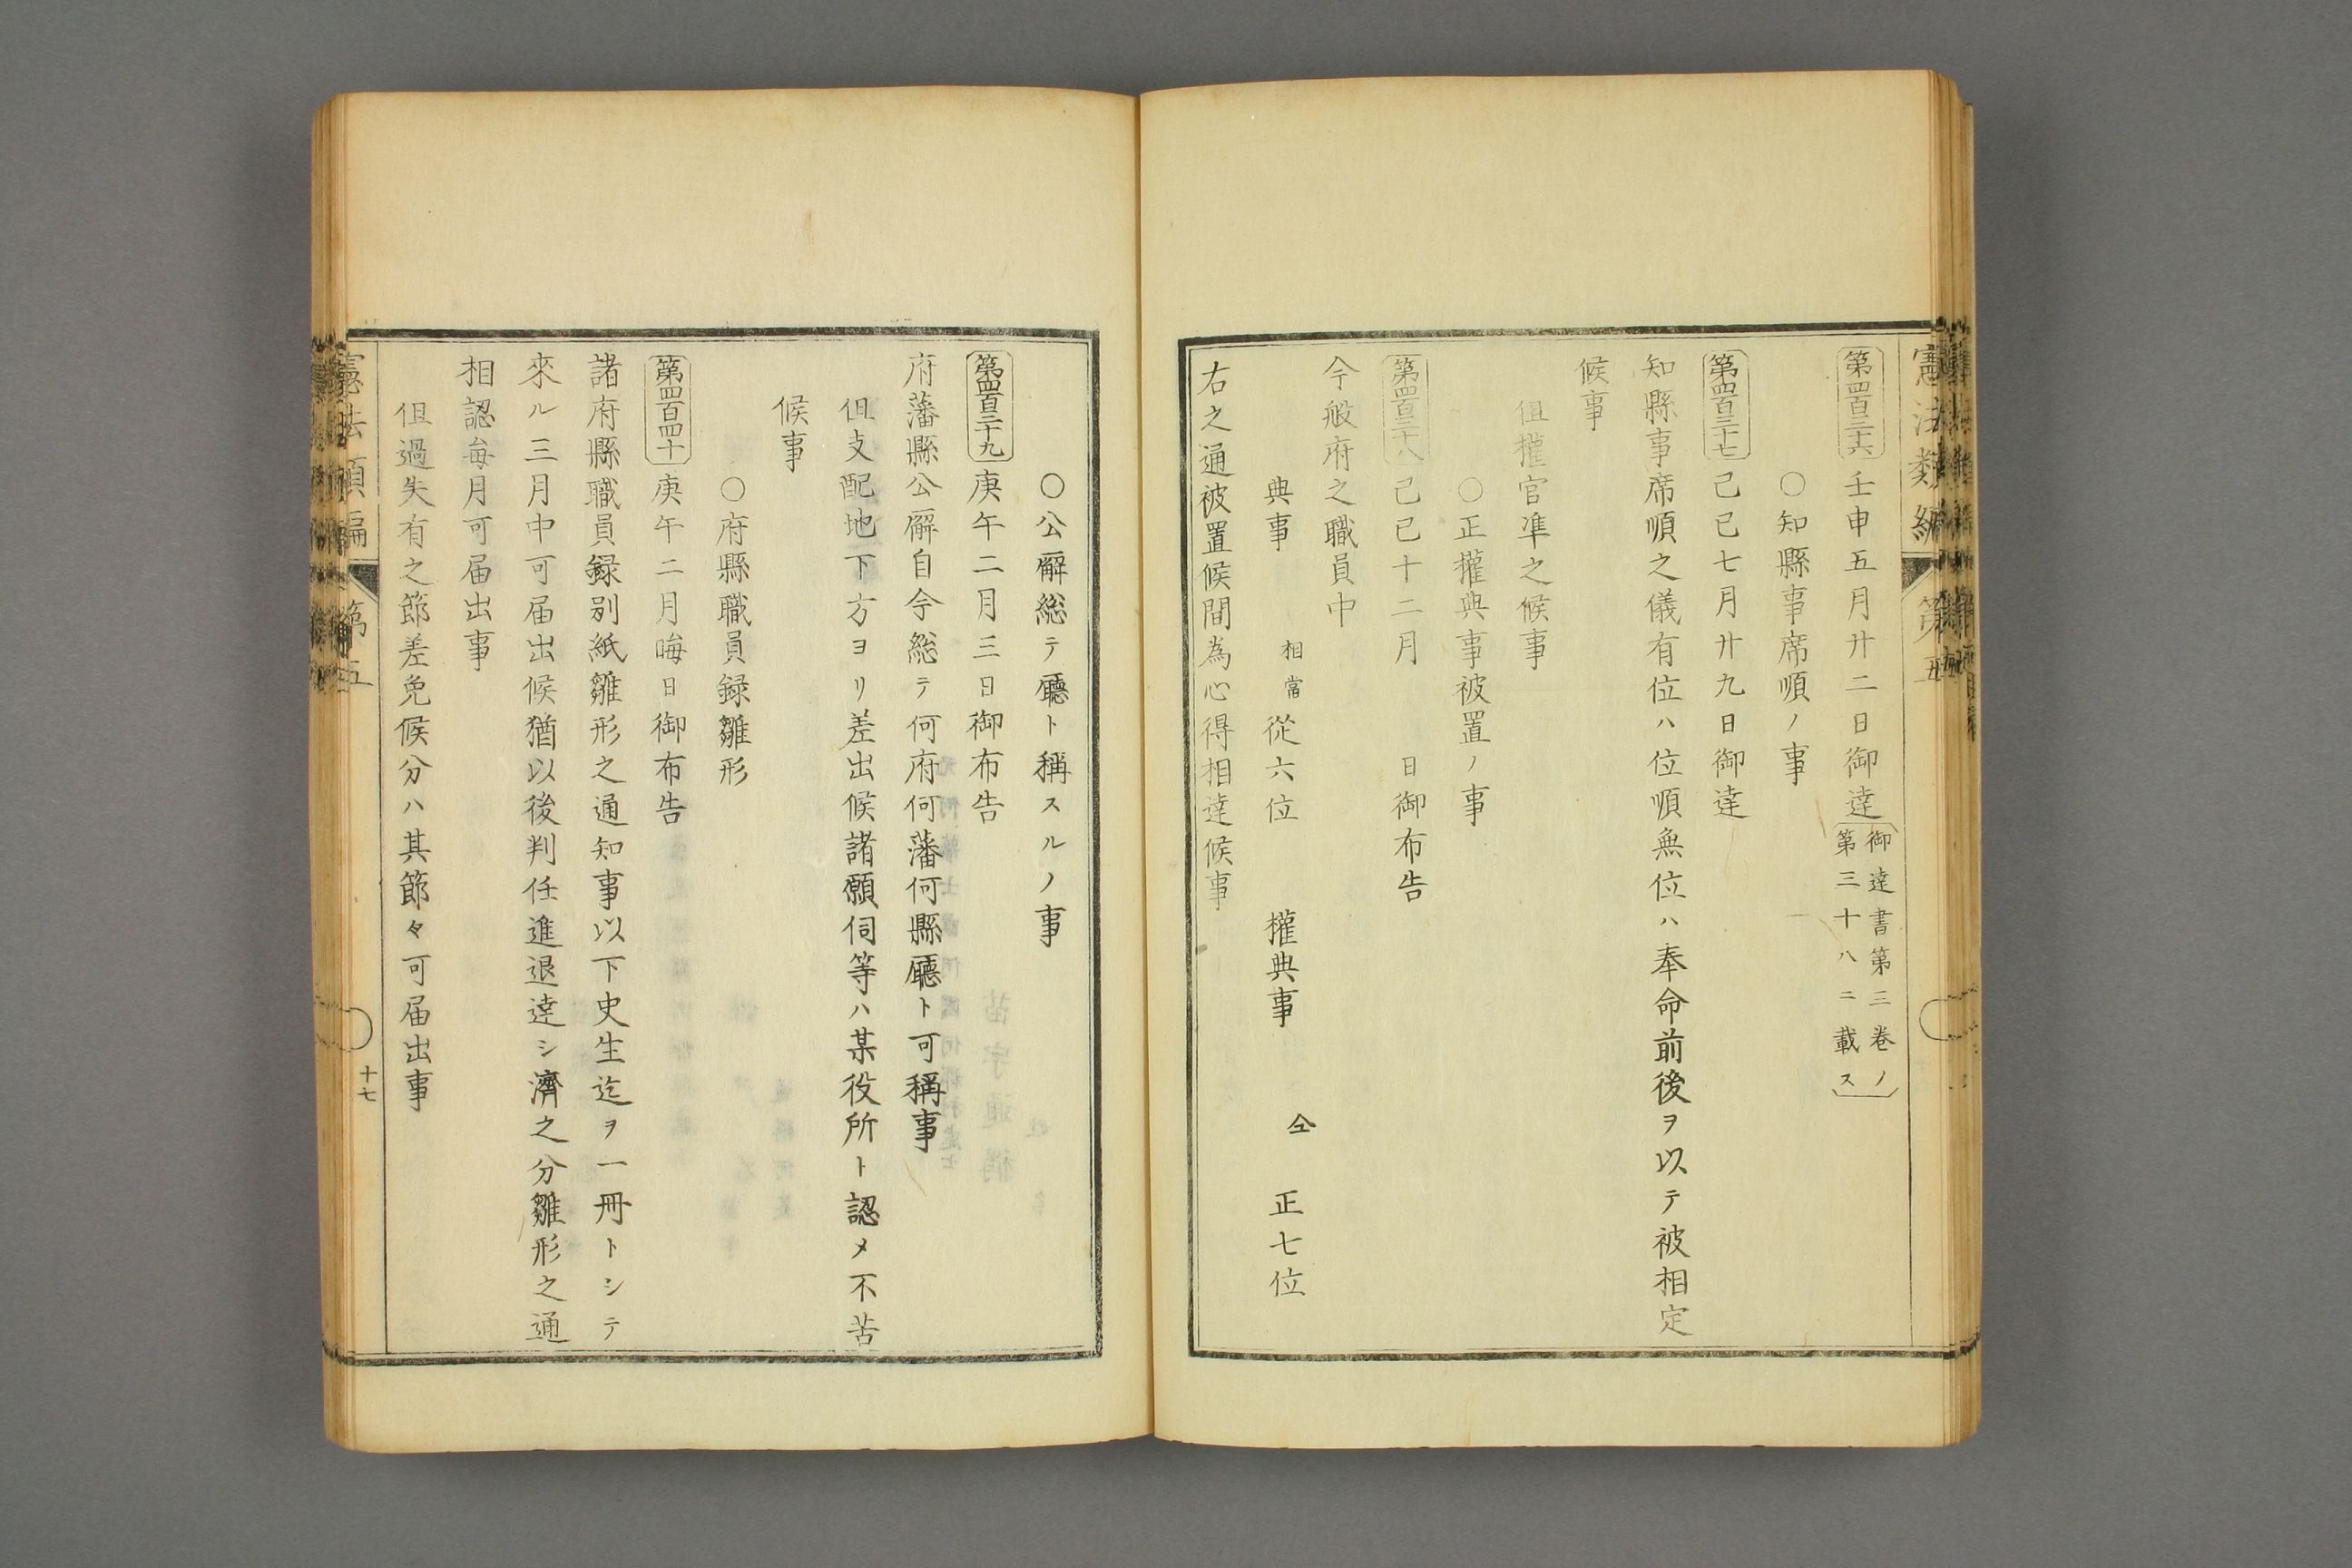 憲法類編 第五
第四百三十六 壬申五月廿二日御達 御達書第三卷ノ
第三十八ニ載ス
○知縣事席順ノ事
第四百三十七 己巳七月廿九日御達
知縣事席順之儀有位ハ位順無位ハ奉命前後ヲ以テ被相定
候事
但權官準之候事
○正權典事被置ノ事
第四百三十八 己巳十二月 日御布告
今般府之職員中
典事 相當從六位 權典事 仝 正七位
右之通被置候間為心得相達候事
○公廨総テ廳ト稱スルノ事
第四百三十九 庚午二月三日御布告
府藩縣公廨自今総テ何府何藩何縣廳ト可稱事
但支配地下方ヨリ差出候諸願伺等ハ某役所ト認メ不苦
候事
○府縣職員録雛形
第四百四十 庚午二月晦日御布告
諸府縣職員録別紙雛形之通知事以下史生迄ヲ一冊トシテ
來ル三月中可届出候猶以後判任進退達シ濟之分雛形之通
相認毎月可届出事
但過失有之節差免候分ハ其節々可届出事
憲法類編 第五 十七